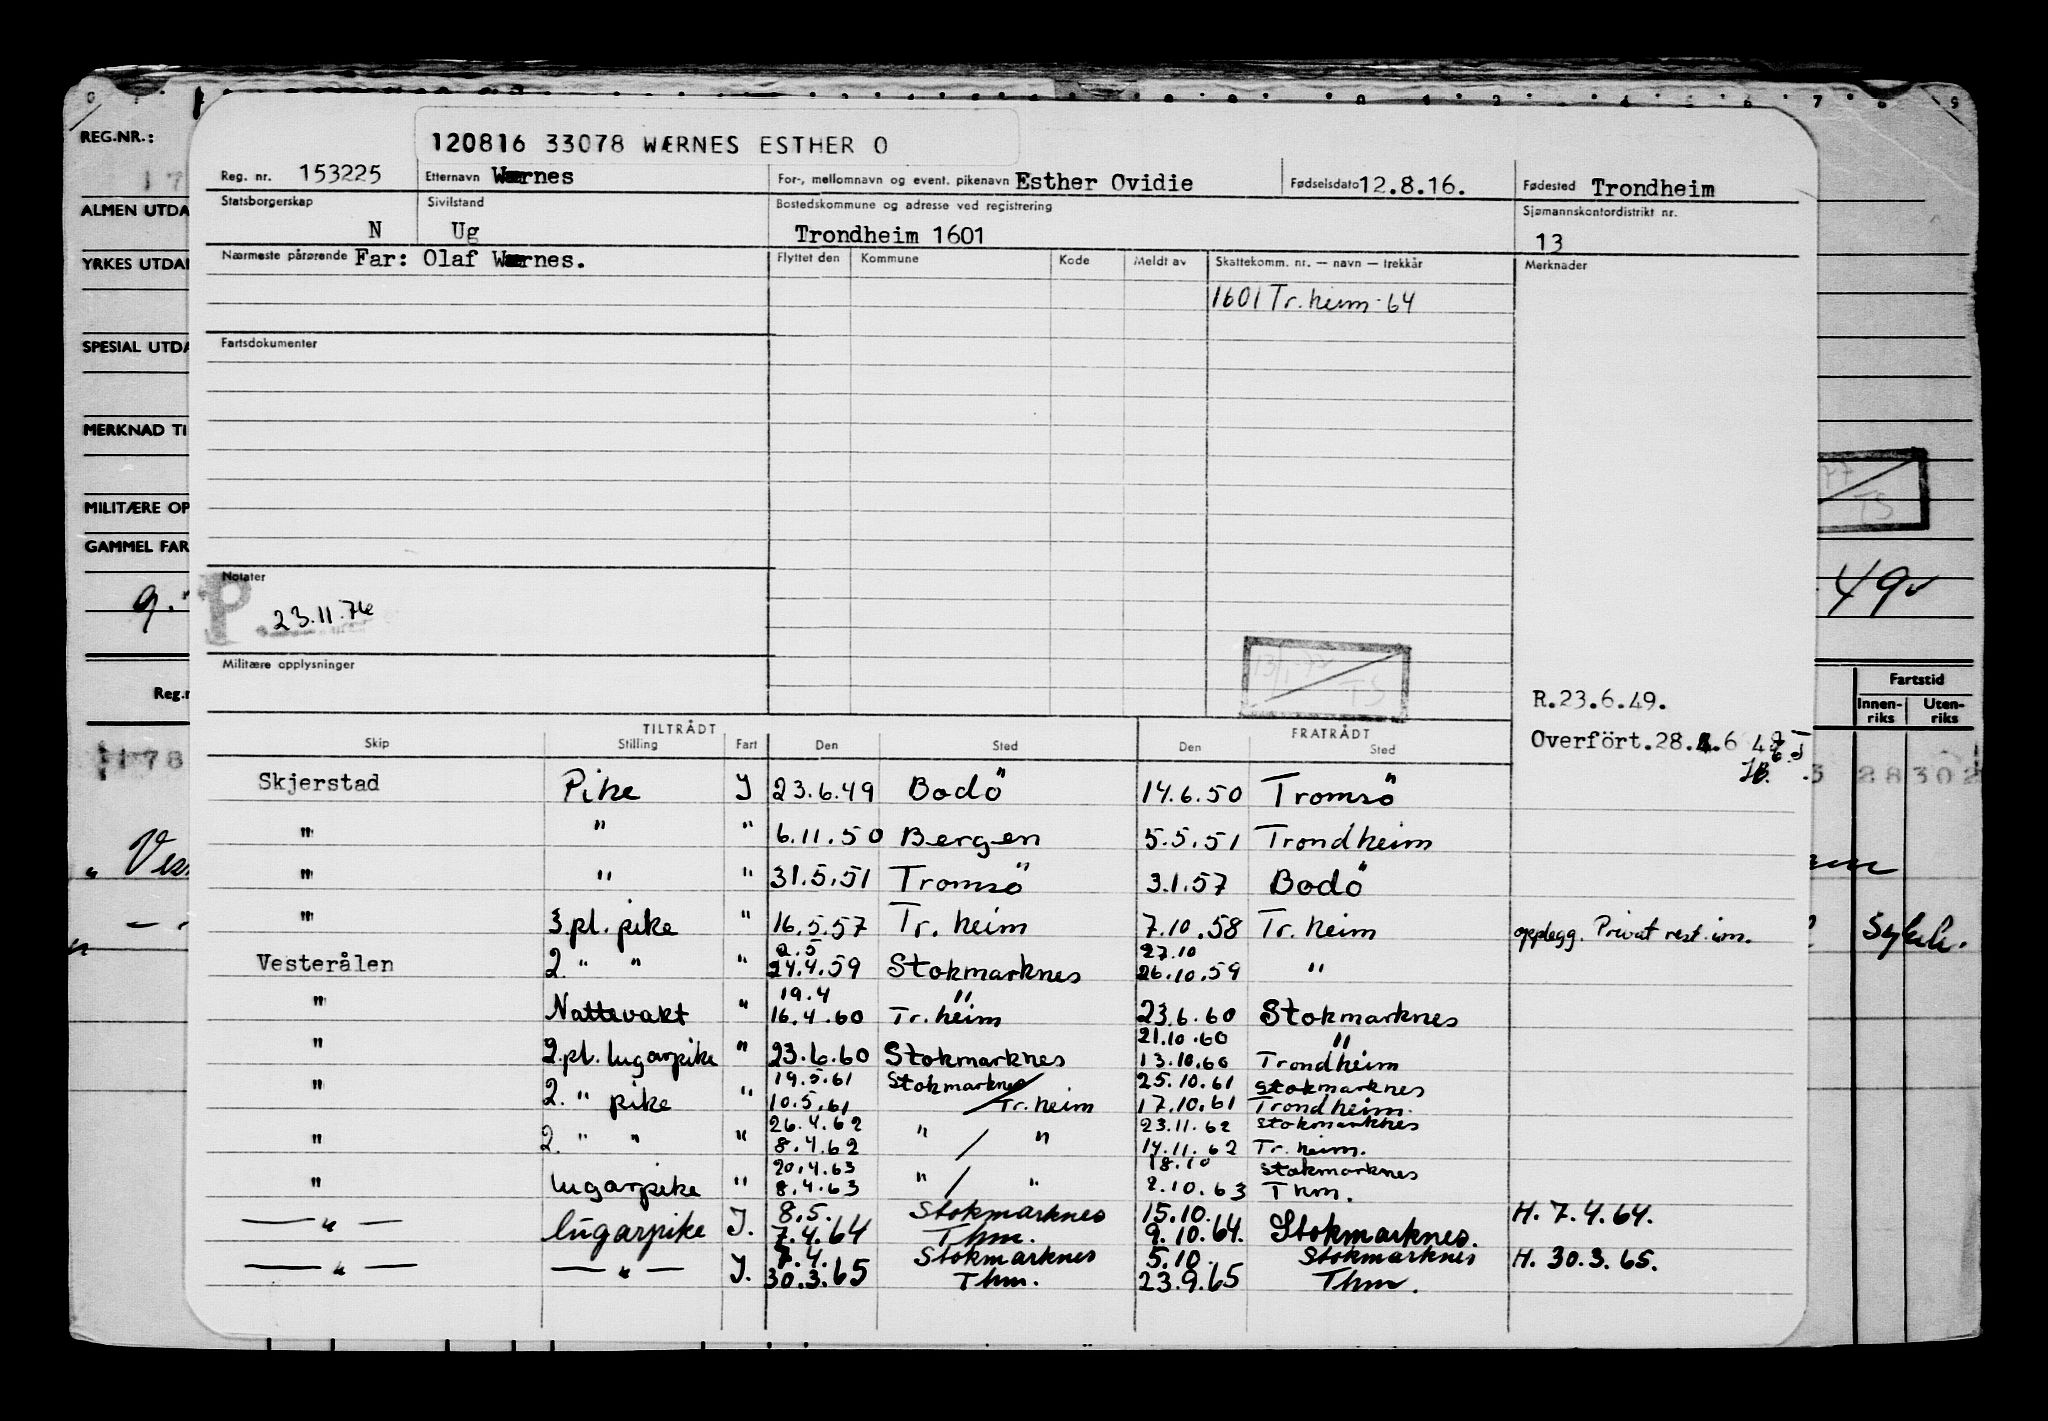 REG.NR.:
120816 33078 WÆRNES ESTHER O
Reg. nr. 153225 Etternavn Wærnes For-, mellomnavn og event. pikenavn Esther Ovidie Fødselsdato 12.8.16. Fødested Trondheim
ALMEN UTDA
Statsborgerskap N Sivilstand Ug Bostedskommune og adresse ved registrering Trondheim 1601 Sjømannskontordistrikt nr. 13
YRKES UTDA
Nærmeste pårørende Far: Olaf Wærnes. Flyttet den Kommune Kode Meldt av Skattekomm. nr. — navn — trekkår Merknader
1601 Tr.heim -64
SPESIAL UTDA
Fartsdokumenter
MERKNAD TI
MILITÆRE OP
GAMMEL FAR
Notater
P 23.11.76
49
Militære opplysninger
13/1-77 TS
Reg.n
Fartstid
Innen-riks Uten-riks
R.23.6.49.
Overfört.28.6 49
TILTRÅDT FRATRÅDT
Skip Stilling Fart Den Sted Den Sted
178
28302
Skjerstad Pike J 23.6.49 Bodö 14.6.50 Tromsö
" " " 6.11.50 Bergen 5.5.51 Trondheim
" " " 31.5.51 Tromsö 3.1.57 Bodö
" 3.pl. pike " 16.5.57 Tr.heim 7.10.58 Tr.heim opplegg. Privat rest.
2.5 27.10
Vesterålen 2. " " " 24.4.59 Stokmarknes 26.10.59 "
19.4 "
" Nattevakt " 16.4.60 Tr.heim 23.6.60 Stokmarknes
21.10.60 "
" 2.pl. lugarpike " 23.6.60 Stokmarknes 13.10.60 Trondheim
19.5.61 Stokmarknes 25.10.61 Stokmarknes
" 2. " pike " 10.5.61 / Tr.heim 17.10.61 Trondheim.
26.4.62 23.11.62 Stokmarknes
" 2. " " " 8.4.62 " / " 14.11.62 Tr.heim.
20.4.63 18.10 Stokmarknes
" lugarpike " 8.4.63 " / " 2.10.63 Thm.
8.5. Stokmarknes 15.10. H. 7.4.64.
— " — lugarpike J. 7.4.64 Thm. 9.10.64. Stokmarknes.
7.4. Stokmarknes 5.10. Stokmarknes H. 30.3.65.
— " — — " — J. 30.3.65 Thm. 23.9.65 Thm.